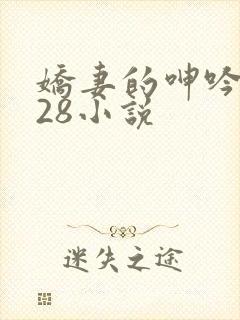 嬌妻的呻吟
28小說
迷失之途